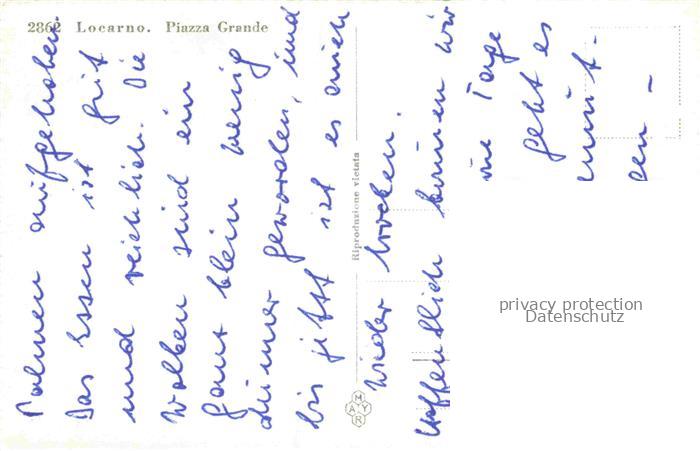 2862 Locarno. Piazza Grande
Palmen aufgehoben
Das Essen ist gut
und reichlich. Die
Wolken sind ein
ganz klein wenig
dünner geworden, und
bis jetzt ist es auch
wieder trocken.
Hoffentlich können wir
die Tage
geht es
Riproduzione vietata
MYRA
privacy protection
Datenschutz